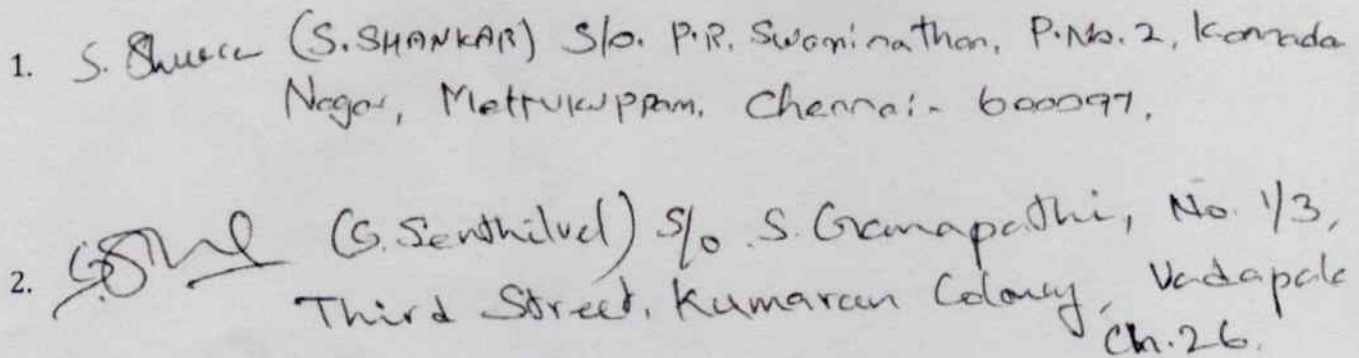 1. S. Shankar (S.SHANKAR) S/o. P.R. Swaminathan, P.No. 2, Kannada
Nagar, Mettukuppam, Chennai- 600097.
2. (G. Senthilvel) S/o. S. Ganapathi, No. 1/3,
Third Street, Kumaran Colony, Vadapale
Ch.26.